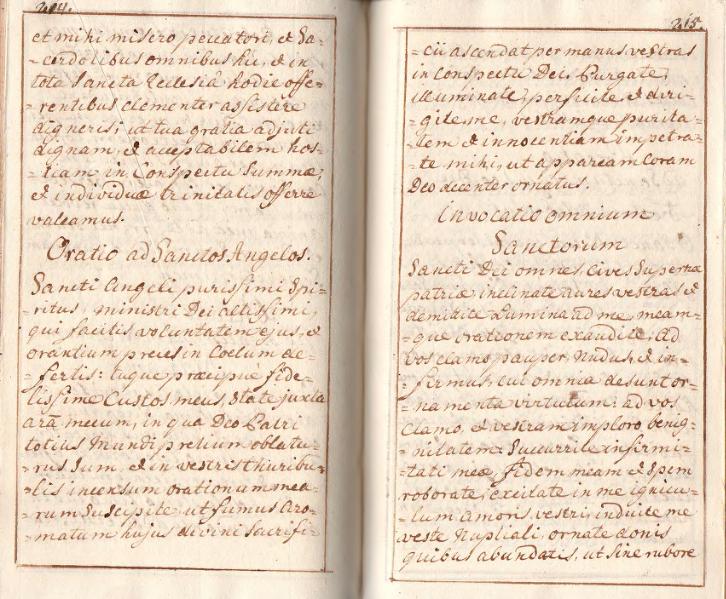 214.
et mihi misero peccatori, et Sa-
-cerdotibus omnibus hic, et in
tota Sancta Ecclesiâ hodie offe-
-rentibus clementer assistere
digneris; ut tua gratia adjuti
dignam, et acceptabilem hos-
-tiam in Conspectu Summæ,
et individuæ trinitatis offerre
valeamus.
Oratio ad Sanctos Angelos.
Sancti Angeli purissimi Spi-
ritus, ministri Dei altissimi,
qui facitis voluntatem ejus, et
orantium preces in Coelum de-
-fertis: tuque præcipue fide-
-lissime Custos meus, state juxta
aram mecum, in qua Deo Patri
totius Mundi pretium oblatu-
-rus Sum, et in vestris thuribu-
-lis incensum orationum mea-
-rum Suscipite, ut fumus aro-
-matum hujus divini Sacrifi-
215.
-cii ascendat per manus vestras
in Conspectu Dei. Purgate,
illuminate, perficite, et diri-
-gite me, vestramque purita-
-tem et innocentiam impetra-
-te mihi, ut appaream Coram
Deo decenter ornatus.
Invocatio omnium
Sanctorum
Sancti Dei omnes, Cives Supernæ
patriæ inclinate aures vestras et
lumina ad me, meam-
-que orationem exaudite. Ad
vos clamo pauper, Nudus, et in-
-firmus, cui omnia desunt or-
-namenta virtutum: ad vos
Clamo, et vestram imploro benig-
-nitatem: Succurrite infirmi-
-tati meæ, fidem meam et Spem
roborate; excitate in me ignicu-
-lum amoris vestri; induite me
veste Nuptiali, ornate donis
quibus abundatis, ut Sine rubore